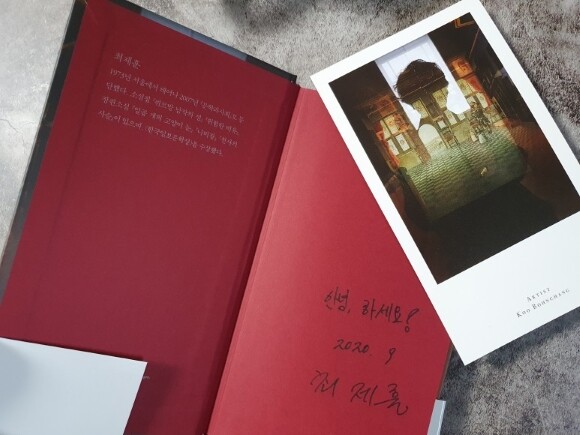 최제훈
1973년 서울에서 태어나 2007년 『문학과사회』로 등
단했다. 소설집 『퀴르발 남작의 성』 『위험한 비유』,
장편소설 『일곱 개의 고양이 눈』 『나비잠』 『천사의
사슬』이 있으며, 한국일보문학상을 수상했다.
안녕, 하세요!
2020. 9
최제훈
ARTIST
KOO BOHNCHANG